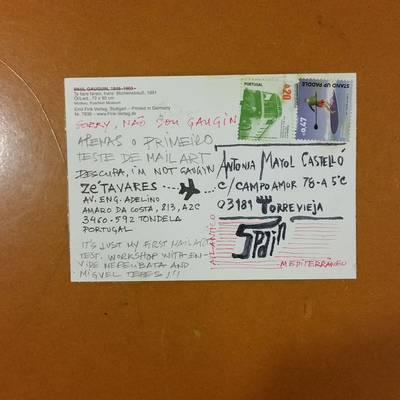 PAUL GAUGUIN, 1848-1903
Te tiare farani, franz. Blumenstrauß, 1891
Öl/Lwd. 72 x 92 cm
Moskau, Puschkin Museum
Emil Fink Verlag, Stuttgart – Printed in Germany
www.Fink-Verlag.de
SORRY, NÃO SOU GAUGIN
APENAS O PRIMEIRO
TESTE DE MAIL ART
DESCUPA, I'M NOT GAUGIN
ZE'TAVARES
AV. ENG. ADELINO
AMARO DA COSTA, 813, A2C
3460-592 TONDELA
PORTUGAL
IT'S JUST MY FIRST MAIL ART
TEST. WORKSHOP WITH EN-
VIDE NEFELIBATA AND
MIGUEL TEBES!!!
PORTUGAL
0,20
STAND UP PADDLE
€0,47
ANTONIA MAYOL CASTELLÓ
C/ CAMPOAMOR 78-A 5ºC
03181 TORREVIEJA
Spain
ATLÂNTICO
MEDITERRÂNEO